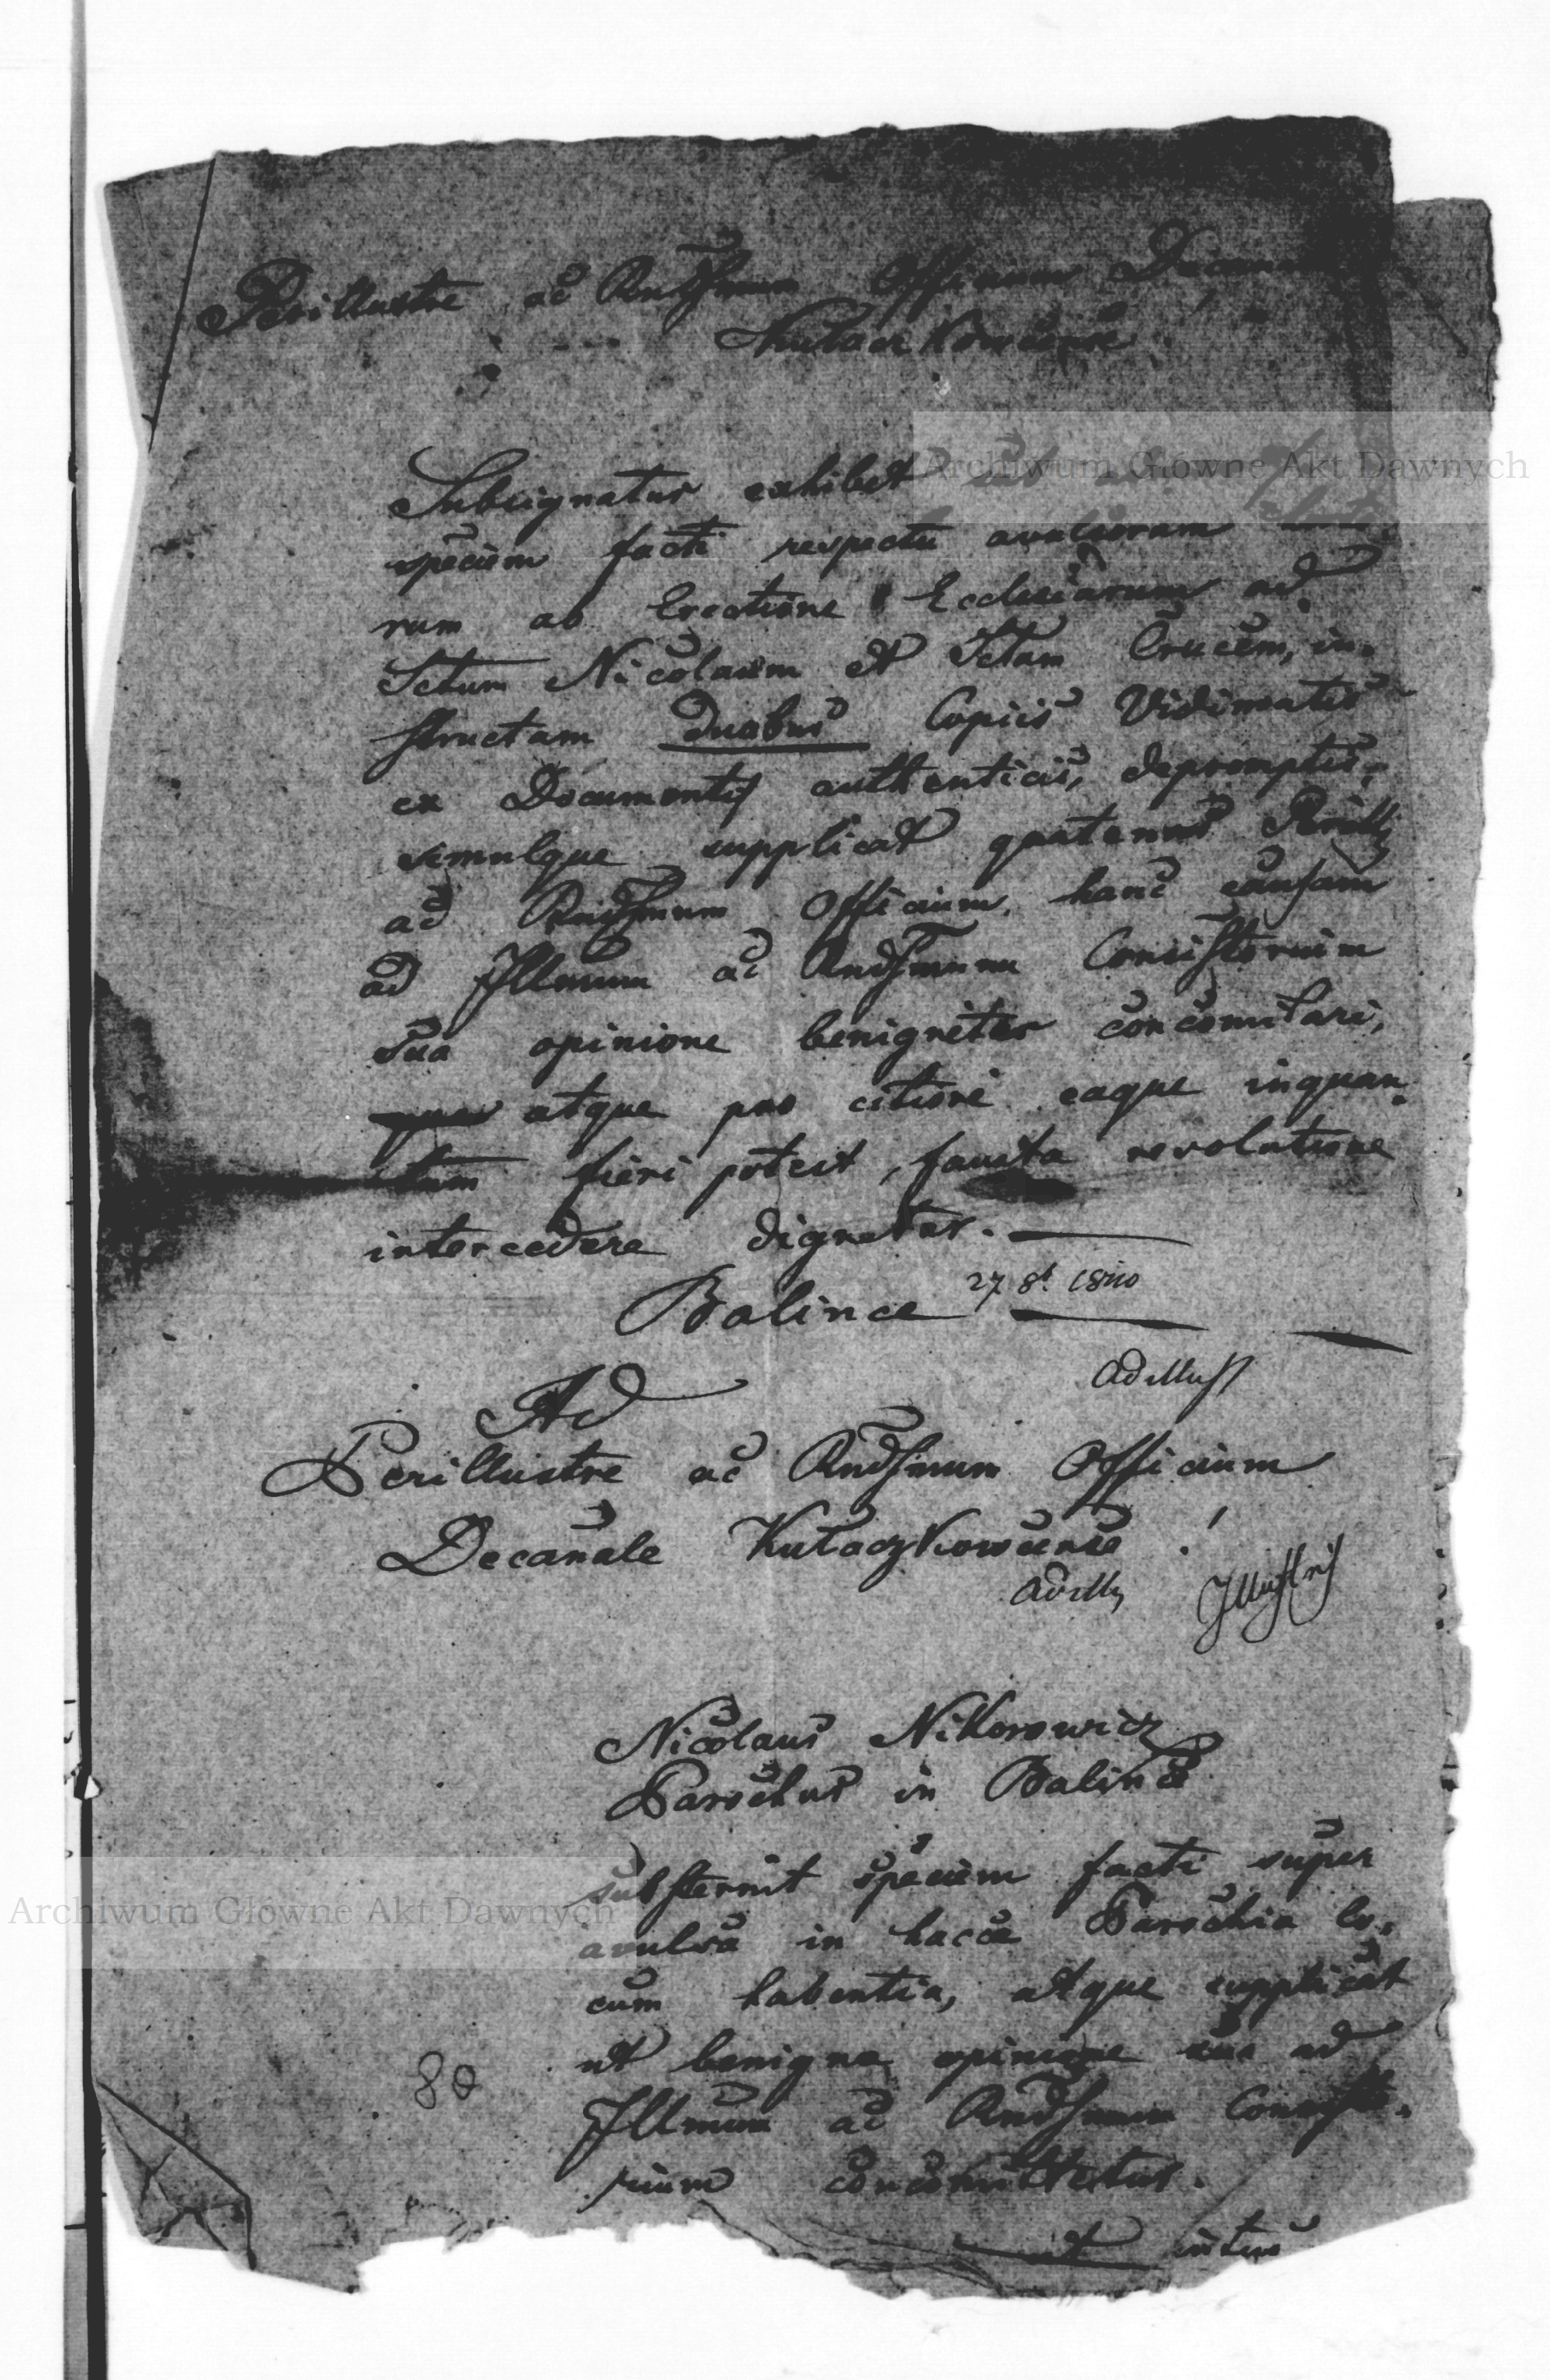 Perillustre ac Rndssmum Officium Decanale
Kutaczkowcense !
Archiwum Główne Akt Dawnych
Subsignatus exhibet
speciem facti respectu avulsorum
rum ab Erectione Ecclesiarum ad
Sctum Nicolaum et Sctam Crucem, in-
structam duobus Copiis Vidimatis
ex Documentis authenticis, depromptis,
simulque supplicat quatenus Perill
ac Rndssmum Officium hanc causam
ad Illmum ac Rndssmum Consistorium
sua opinione benigniter concomitari,
atque pro citiori eaque inquan-
tum fieri potest, fausta resolutione
intercedere dignetur.
Balince 27 8b 1840
Ad
Perillustre ac Rndssmum Officium
Decanale Kutaczkowcense !
Illustris
Nicolaus Nikorowicz
Parochus in Balince
substernit speciem facti super
avulsa in hacce Parochia lo-
cum habentia, atque supplicat
Archiwum Główne Akt Dawnych
ut benigna opinione sua ad
Illmum ac Rndssmum Consisto-
rium concomitetur.
80
ut intus